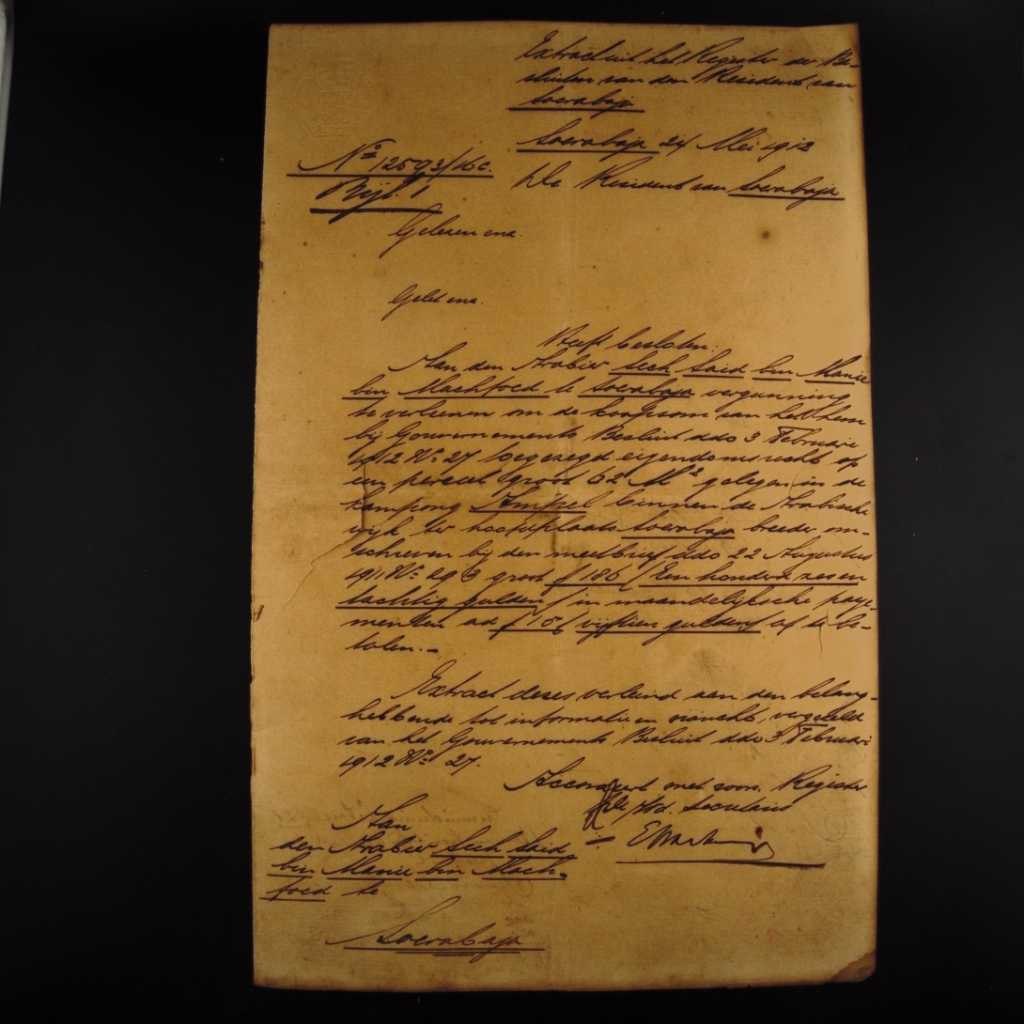 Extract uit het Register der Be-
sluiten van den Resident van
Soerabaja
Soerabaja 24 Mei 1912
No 12593/16c.
Bijl. 1
De Resident van Soerabaja
Gelezen enz.
Gelet enz.
Heeft besloten:
Aan den Arabier Sech Said bin Manie
bin Machfoed te Soerabaja vergunning
te verleenen om de koopsom van het hem
bij Gouvernements Besluit ddo 3 Februarie
1912 No 27 toegezegd eigendomsrecht op
een perceel groot 62 M2 gelegen in de
kampong Ampel binnen de Arabische
wijk ter hoofdplaats Soerabaja breeder om-
schreven bij den meetbrief ddo 22 Augustus
1911 No 293 groot f 186 / Een honderd zes en
tachtig gulden / in maandelijksche paye-
menten ad f 15 / vijftien gulden / af te be-
talen.-
Extract dezes verleend aan den belang-
hebbende tot informatie en naricht, vergezeld
van het Gouvernements Besluit ddo 3 Februari
1912 No 27.
Accordeert met voorz. Register
De Wd. Secretaris
Aan
den Arabier Sech Said
bin Manie bin Mach-
foed te
Soerabaja